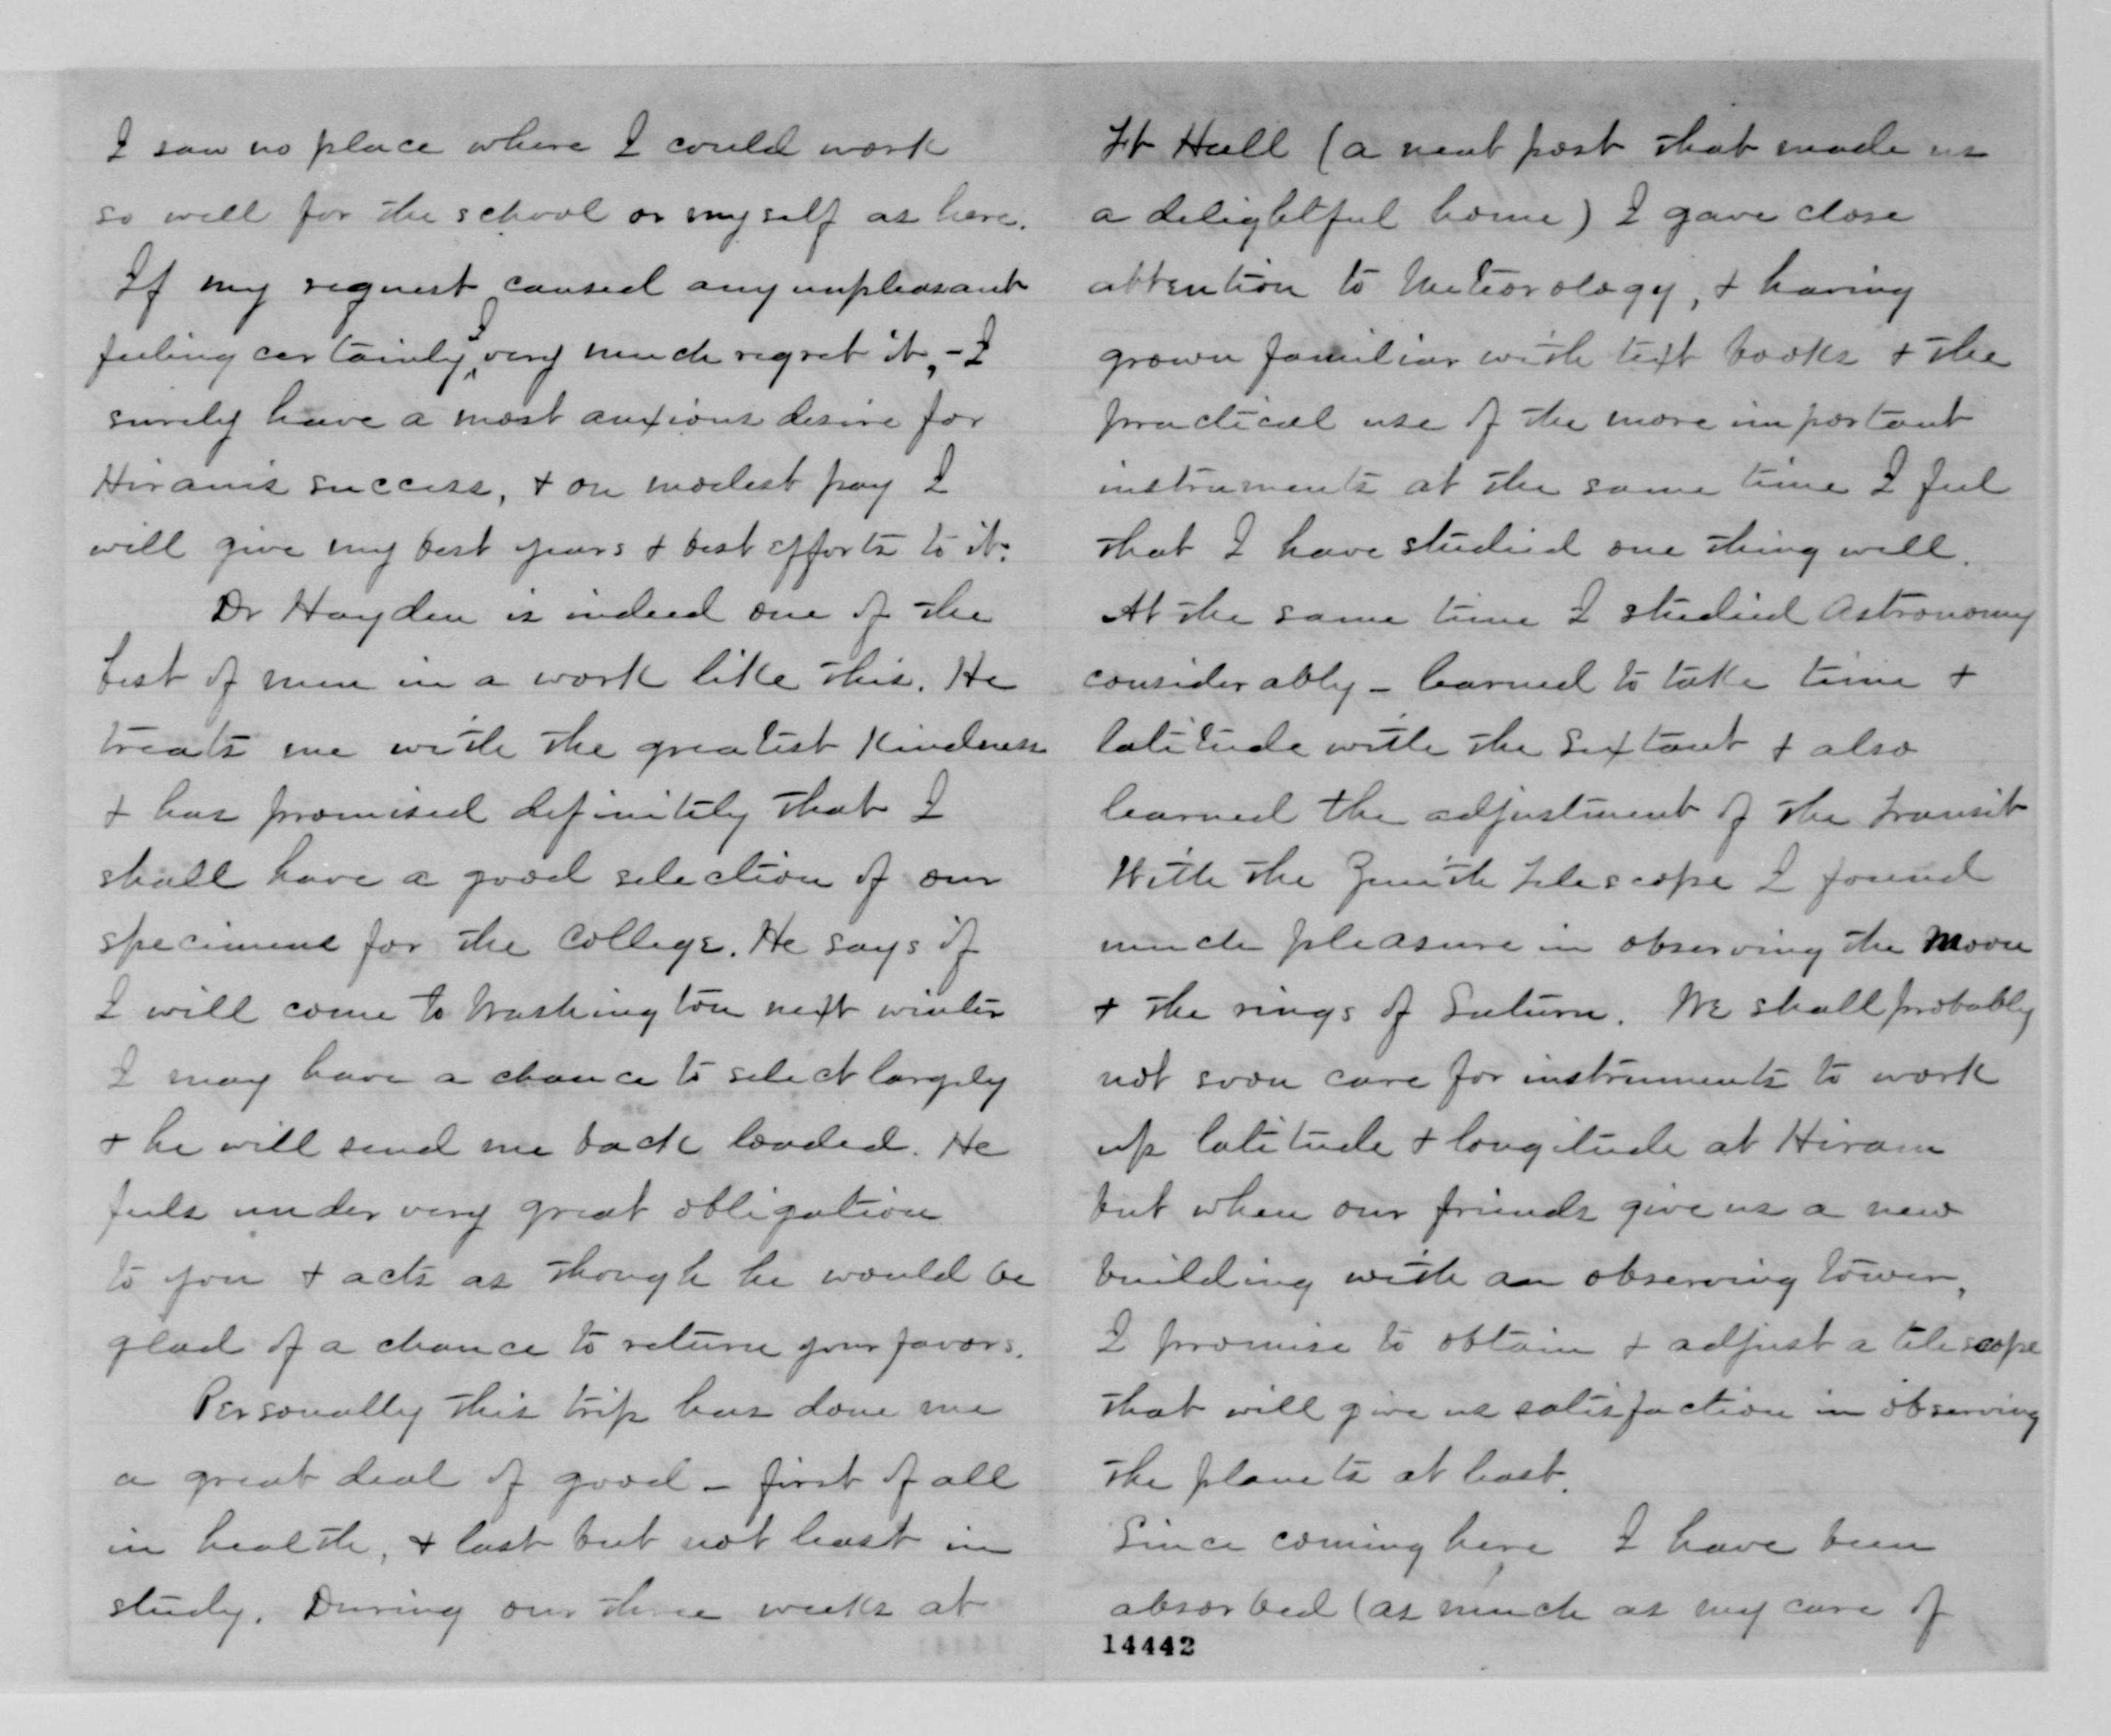 I saw no place where I could work
so well for the school or myself as here.
If my request caused any unpleasant
feeling certainly I very much regret it, - I
surely have a most anxious desire for
Hiram's success, + on modest pay I
will give my best years + best efforts to it.
Dr Hayden is indeed one of the
best of men in a work like this. He
treats me with the greatest kindness
+ has promised definitely that I
shall have a good selection of our
specimens for the college. He says if
I will come to Washington next winter
I may have a chance to select largely
+ he will send me back loaded. He
feels under very great obligation
to you + acts as though he would be
glad of a chance to return your favors.
Personally this trip has done me
a great deal of good - first of all
in health, + last but not least in
study. During our three weeks at
Ft Hall (a neat post that made us
a delightful home) I gave close
attention to Meteorology, + having
grown familiar with text books + the
practical use of the more important
instruments at the same time I feel
that I have studied one thing well.
At the same time I studied Astronomy
considerably - learned to take time +
latitude with the Sextant + also
learned the adjustment of the transit
With the Zenith Telescope I found
much pleasure in observing the Moon
+ the rings of Saturn. We shall probably
not soon care for instruments to work
up latitude + longitude at Hiram
but when our friends give us a new
building with an observing tower,
I promise to obtain + adjust a telescope
that will give us satisfaction in observing
the planets at least.
Since coming here I have been
absorbed (as much as my care of
14442